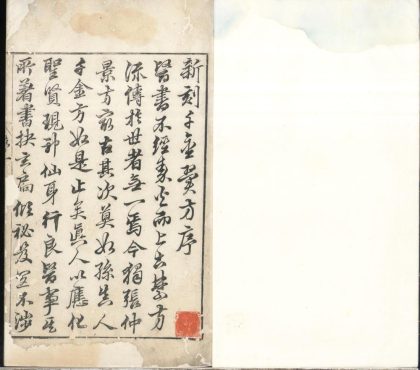 新刻千金翼方序
醫書不經秦火而上古禁方
流傳於世者無一焉今獨張仲
景方最古其次莫如孫真人
千金方如是止矣真人以應化
聖賢現神仙身行良醫事其
所著書抉玄秘笈不涉